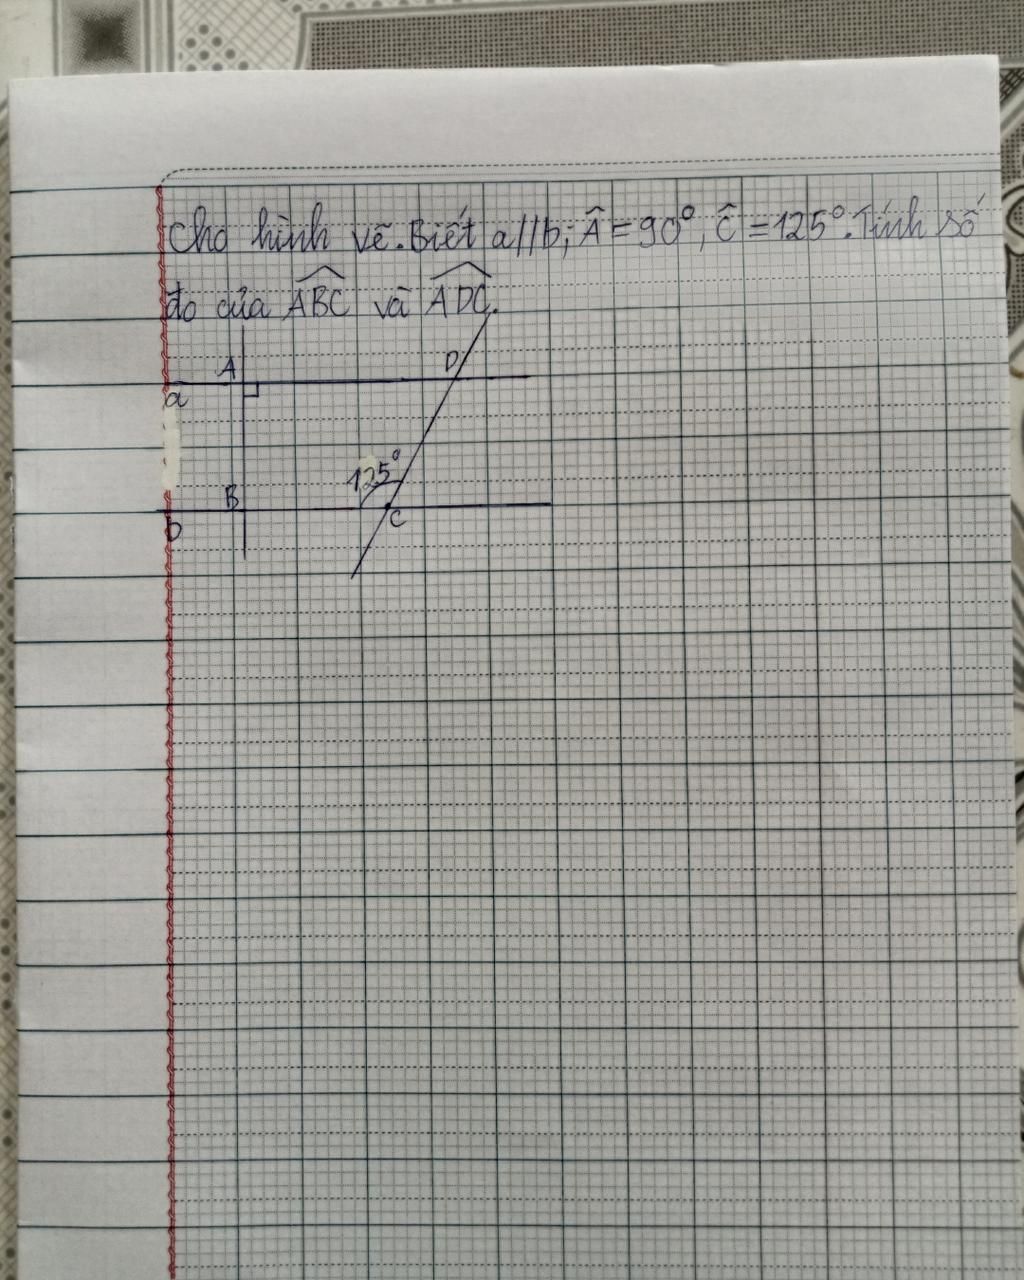 Cho hình vẽ. Biết a//b; Â = 90°, Ĉ = 125°. Tính số
đo của \widehat{ABC} và \widehat{ADC}.
A D
a
125°
B
b C